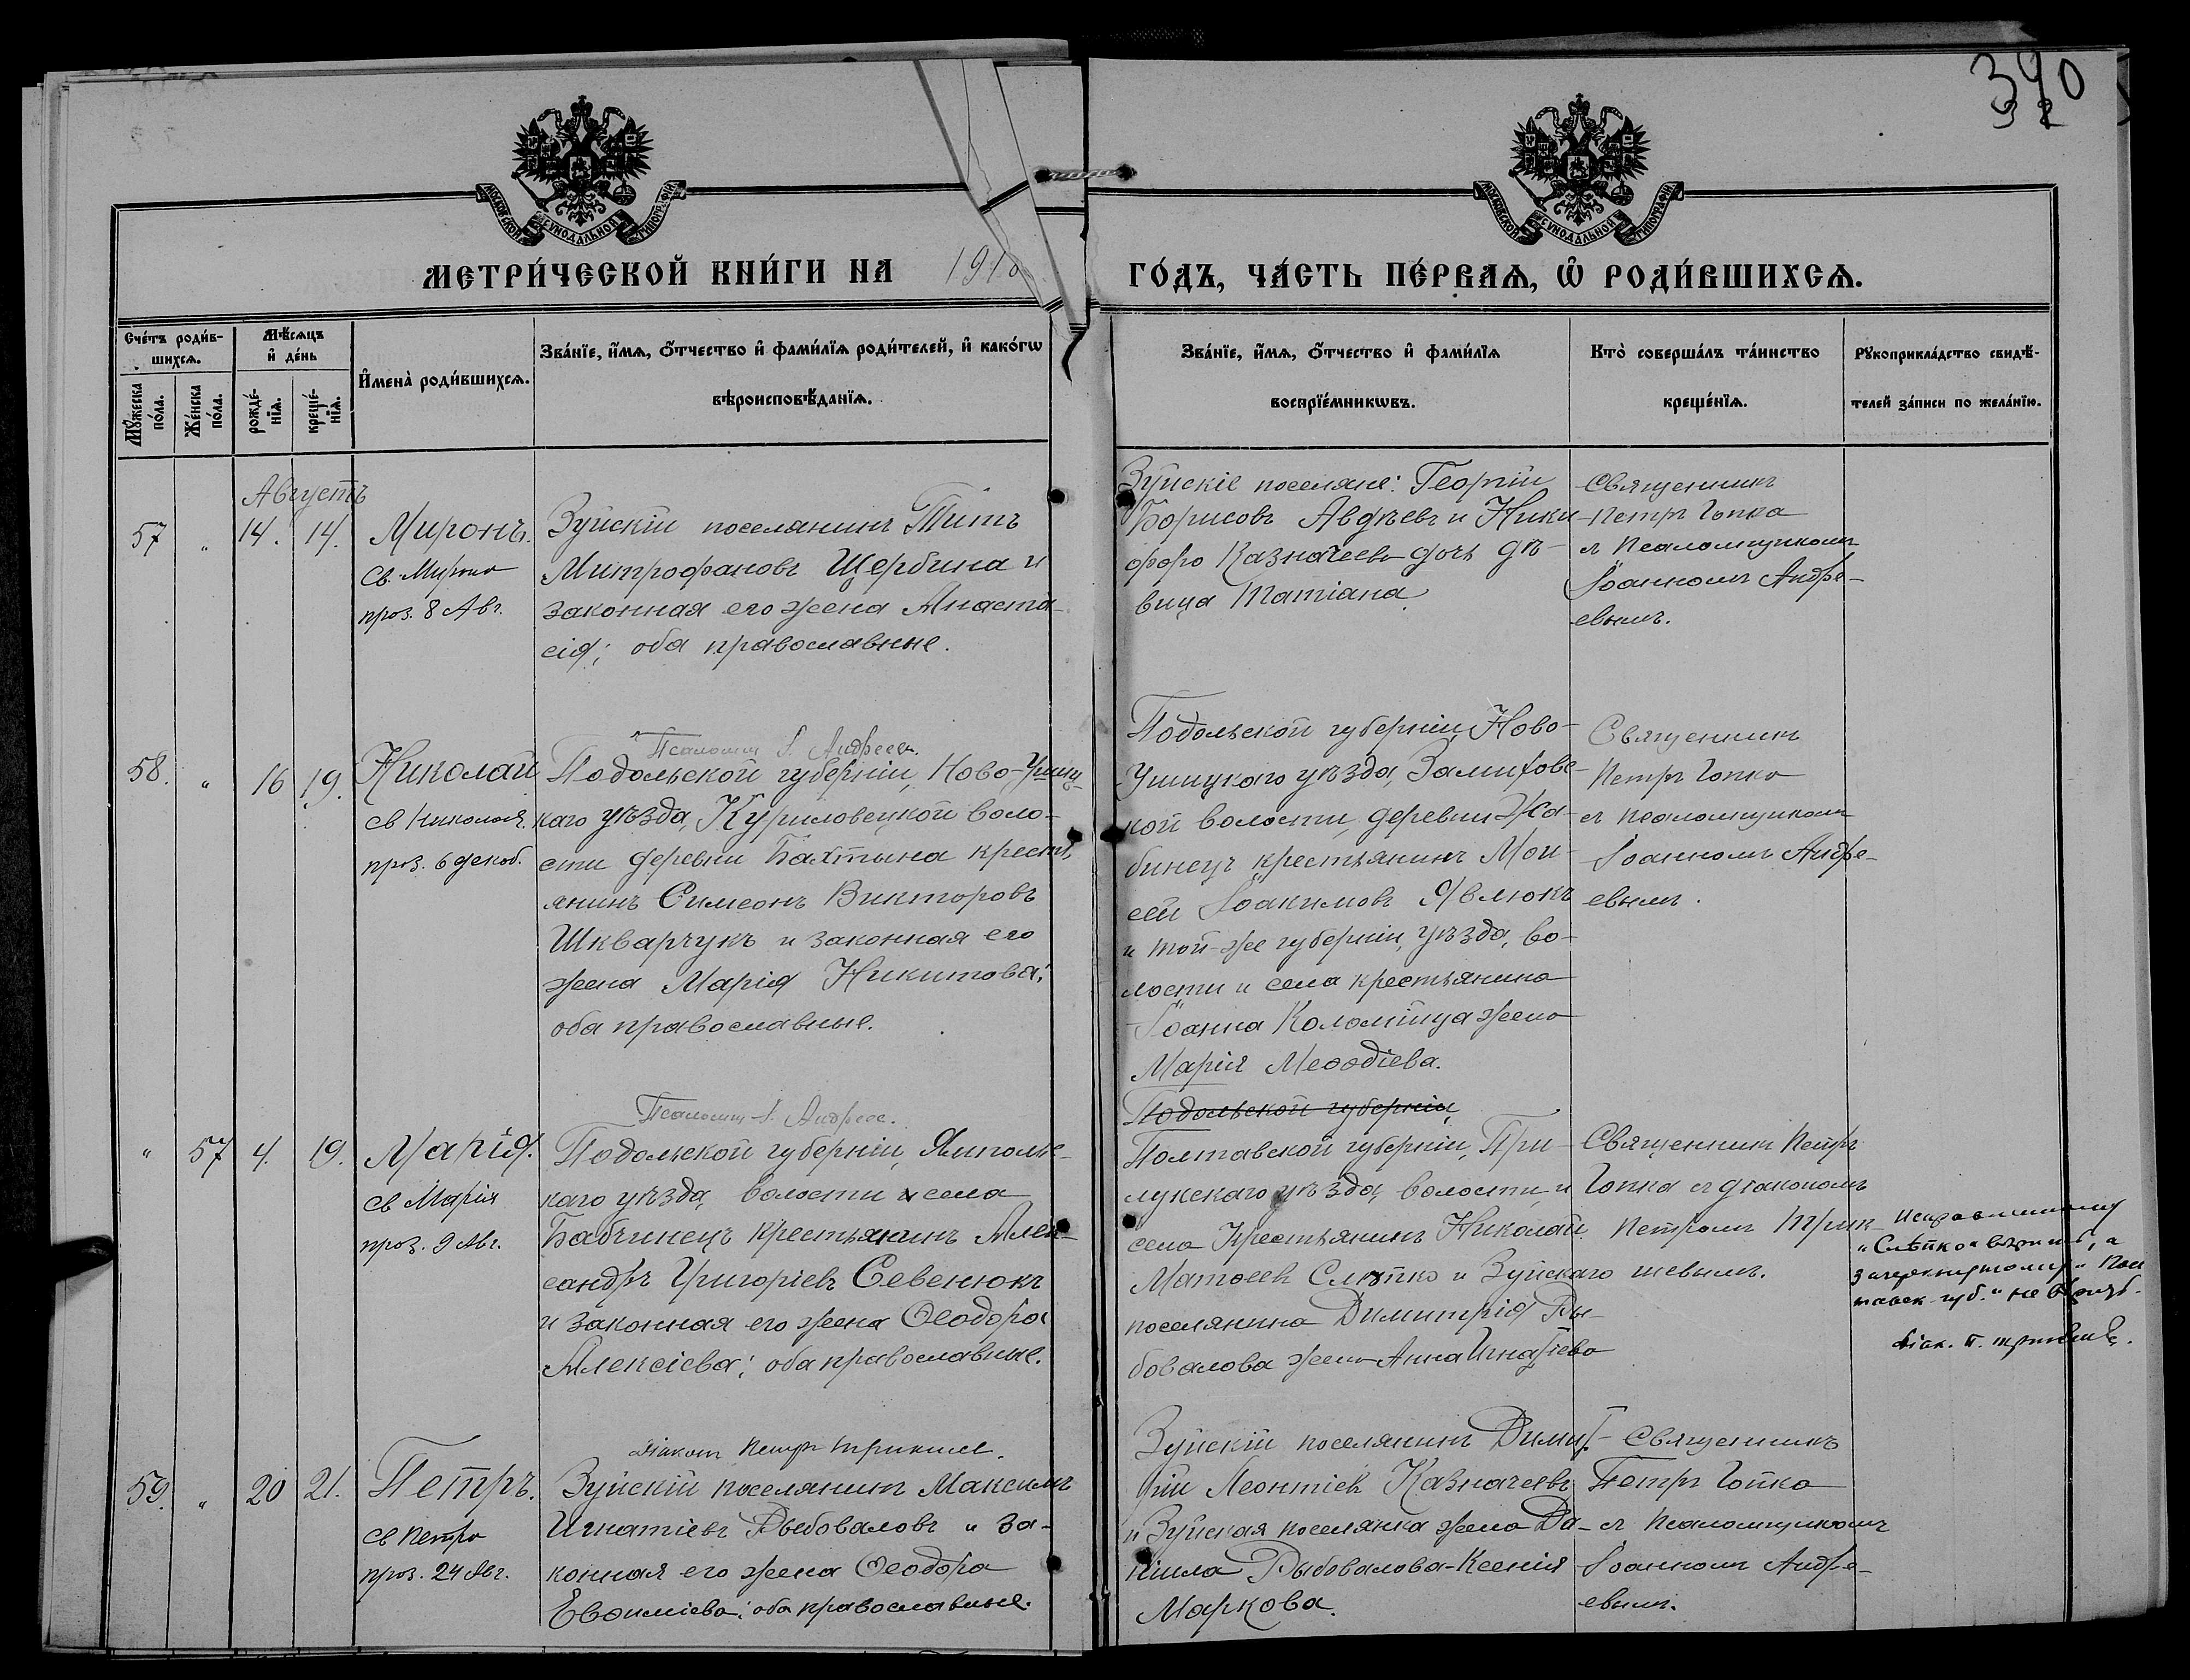 390
МОСКОВСКОЙ СѴНОДАЛЬНОЙ ТИПОГРАФІИ
МОСКОВСКОЙ СѴНОДАЛЬНОЙ ТИПОГРАФІИ
МЕТРИ́ЧЕСКОЙ КНИ́ГИ НА 1910 ГО́ДЪ, ЧА́СТЬ ПЕ́РВАѦ, Ѡ҆ РОДИ́ВШИХСѦ.
Сче́тъ роди́в-
шихсѧ.
Мꙋ́жеска по́ла.
Же́нска по́ла.
Мѣ́сѧцъ
и҆ де́нь
рожде́-
нїѧ.
креще́-
нїѧ.
И҆мена̀ роди́вшихсѧ.
Зва́нїе, и҆́мѧ, ѻ҆́тчество и҆ фами́лїѧ роди́телей, и҆ како́гѡ
вѣроисповѣ́данїѧ.
Зва́нїе, и҆́мѧ, ѻ҆́тчество и҆ фами́лїѧ
воспрїе́мникѡвъ.
Кто̀ соверша́лъ та́инство
креще́нїѧ.
Рꙋкоприкла́дство свидѣ́-
телей за́писи по жела́нїю.
Августъ
57 " 14. 14.
Миронъ.
Св. Мирона
праз. 8 Авг.
Зуйскій поселянинъ Титъ
Митрофановъ Щербина и
законная его жена Анаста-
сія; оба православные.
Зуйскіе поселяне: Георгій
Борисовъ Авдѣевъ и Ники-
фора Казначеева дочь дѣ-
вица Татіана.
Священникъ
Петръ Гопка
съ Псаломщикомъ
Іоанномъ Андре-
евымъ.
Псаломщ. І. Андреевъ.
58. " 16 19.
Николай
Св Николая.
праз. 6 декаб.
Подольской губерніи, Ново-Ушиц-
каго уѣзда, Куриловецкой воло-
сти деревни Бахтына крестья-
янинъ Симеонъ Викторовъ
Шкварчукъ и законная его
жена Марія Никитова;
оба православные.
Подольской губерніи, Ново-
Ушицкаго уѣзда, Замихове-
кой волости, деревни Жа-
бинецъ крестьянинъ Мои-
сей Іоакимовъ Явлюкъ
и той-же губерніи, уѣзда, во-
лости и села крестьянина
Іоанна Коломійца жена
Марія Меѳодіева.
Священникъ
Петръ Гопка
съ псаломщикомъ
Іоанномъ Андре-
евымъ.
Псаломщ. І. Андреев.
" 57 4. 19.
Марія.
Св Марія
праз. 9 Авг.
Подольской губерніи, Ямполь-
каго уѣзда, волости и села
Бабчинецъ крестьянинъ Алек-
сандръ Григоріевъ Севенюкъ
и законная его жена Ѳеодора
Алексіева; оба православные.
Подольской губерніи,
Полтавской губерніи, При-
лукскаго уѣзда, волости и
села Крестьянинъ Николай
Матѳеевъ Слѣпко и Зуйскаго
поселянина Димитрія Ры-
бовалова жена Анна Игнатіева
Священникъ Петръ
Гопка съ діакономъ
Петромъ Трик-
шевымъ.
Исправленному
"Слѣпко" вѣрить, а
зачеркнутому "Пол
тавск. губ." не вѣрить.
Діак. П.
Діаконъ Петръ
59. " 20 21.
Петръ.
Св Петра
праз. 24 Авг.
Зуйскій поселянинъ Максимъ
Игнатіевъ Рыбоваловъ и за-
конная его жена Ѳеодора
Евѳиміева; оба православные.
Зуйскій поселянинъ Димит-
рій Леонтіевъ Казначеевъ
и Зуйская поселянка жена Да-
ніила Рыбовалова-Ксенія
Маркова.
Священникъ
Петръ Гопка
съ Псаломщикомъ
Іоанномъ Андре-
евымъ.